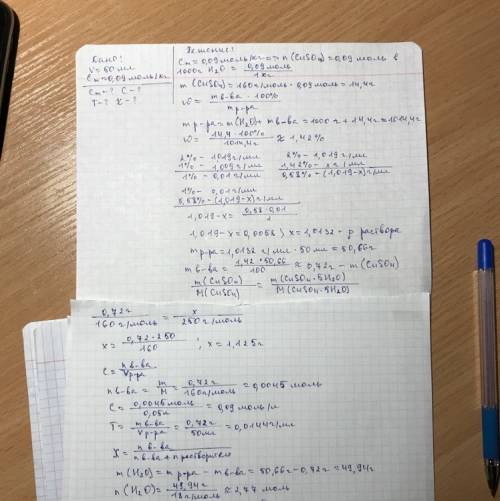 Дано:
V = 50 мл
Cm = 0,09 моль/кг
Cm - ? C - ?
T - ? X - ?
Решение:
Cm = 0,09 моль/кг => n(CuSO4) = 0,09 моль в
1000г H2O = 0,09 моль / 1 кг
m(CuSO4) = 160 г/моль · 0,09 моль = 14,4г
ω = m в-ва · 100% / m р-ра
m р-ра = m(H2O) + m в-ва = 1000г + 14,4г = 1014,4г
ω = 14,4 · 100% / 1014,4г ≈ 1,42%
2% - 1,019 г/мл
1% - 1,009 г/мл
1% - 0,01 г/мл
2% - 1,019 г/мл
1,42% - x г/мл
0,58% - (1,019-x) г/мл
1% - 0,01 г/мл
0,58% - (1,019-x) г/мл
1,019-x = 0,58 · 0,01 / 1
1,019-x = 0,0058; x = 1,0132 - ρ раствора
m р-ра = 1,0132 г/мл · 50 мл = 50,66г
m в-ва = 1,42 · 50,66 / 100 ≈ 0,72г - m(CuSO4)
m(CuSO4) / M(CuSO4) = m(CuSO4·5H2O) / M(CuSO4·5H2O)
0,72г / 160 г/моль = x / 250 г/моль
x = 0,72 · 250 / 160 ; x = 1,125г
C = n в-ва / V р-ра
n в-ва = m / M = 0,72г / 160 г/моль = 0,0045 моль
C = 0,0045 моль / 0,05л = 0,09 моль/л
T = m в-ва / V р-ра = 0,72г / 50мл = 0,0144 г/мл
X = n в-ва / n в-ва + n растворителя
m(H2O) = m р-ра - m в-ва = 50,66г - 0,72г = 49,94г
n(H2O) = 49,94г / 18 г/моль ≈ 2,77 моль